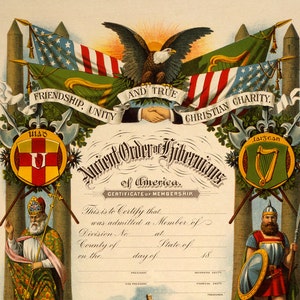 FRIENDSHIP, UNITY AND TRUE CHRISTIAN CHARITY.
Ancient Order of Hibernians
of America.
CERTIFICATE OF MEMBERSHIP.
This is to Certify that
was admitted a Member of
Division No. at
County of State of
on the day of 18